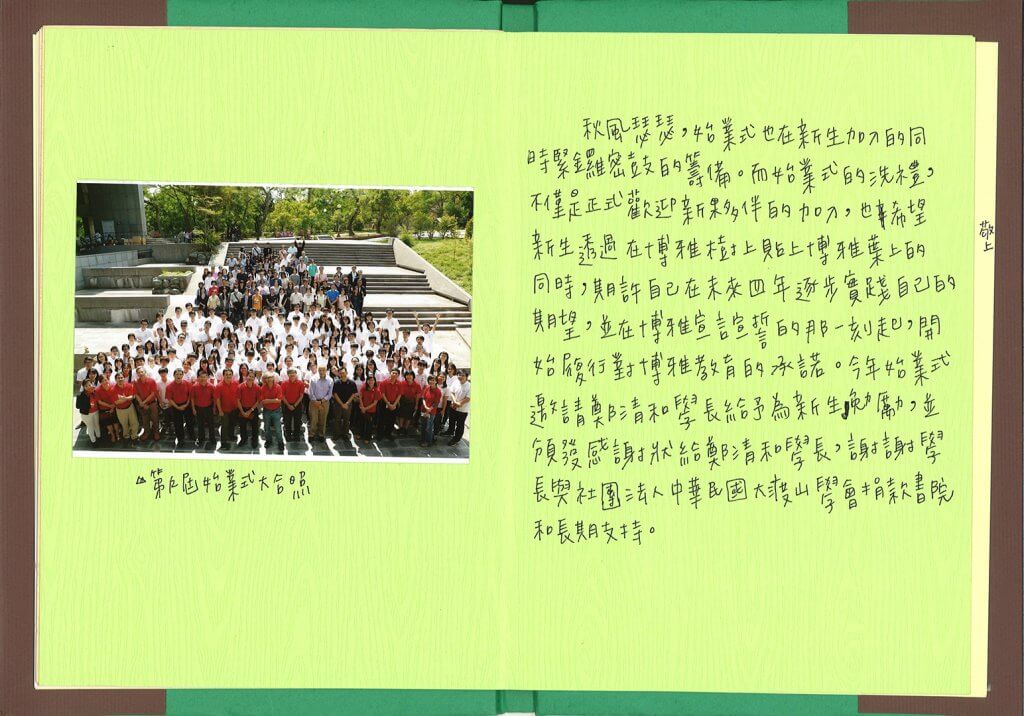 秋風瑟瑟，始業式也在新生加入的同
時緊鑼密鼓的籌備。而始業式的洗禮，
不僅是正式歡迎新夥伴的加入，也希望
新生透過在博雅樹上貼上博雅葉上的
同時，期許自己在未來四年逐步實踐自己的
期望，並在博雅宣言宣誓的那一刻起，開
始履行對博雅教育的承諾。今年始業式
邀請鄭清和學長給予為新生勉勵，並
頒發感謝狀給鄭清和學長，謝謝學
長與社團法人中華民國大度山學會捐款書院
和長期支持。
第屆始業式大合照
敬上